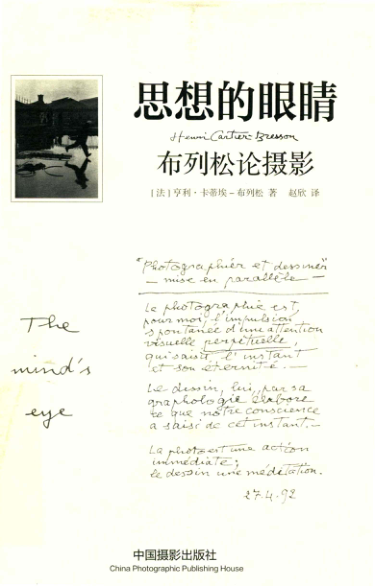 思想的眼睛
Henri Cartier-Bresson
布列松论摄影
［法］亨利·卡蒂埃－布列松 著 赵欣 译
"Photographier et dessiner"
— mise en parallèle —
La photographie est,
pour moi, l'impulsion
spontanée d'une attention
visuelle perpétuelle,
qui saisit l'instant
et son éternité.—
Le dessin, lui, par sa
graphologie élabore
ce que notre conscience
a saisi de cet instant.—
La photo est une action
immédiate;
le dessin une méditation.
27.4.92
The
mind's
eye
中国摄影出版社
China Photographic Publishing House